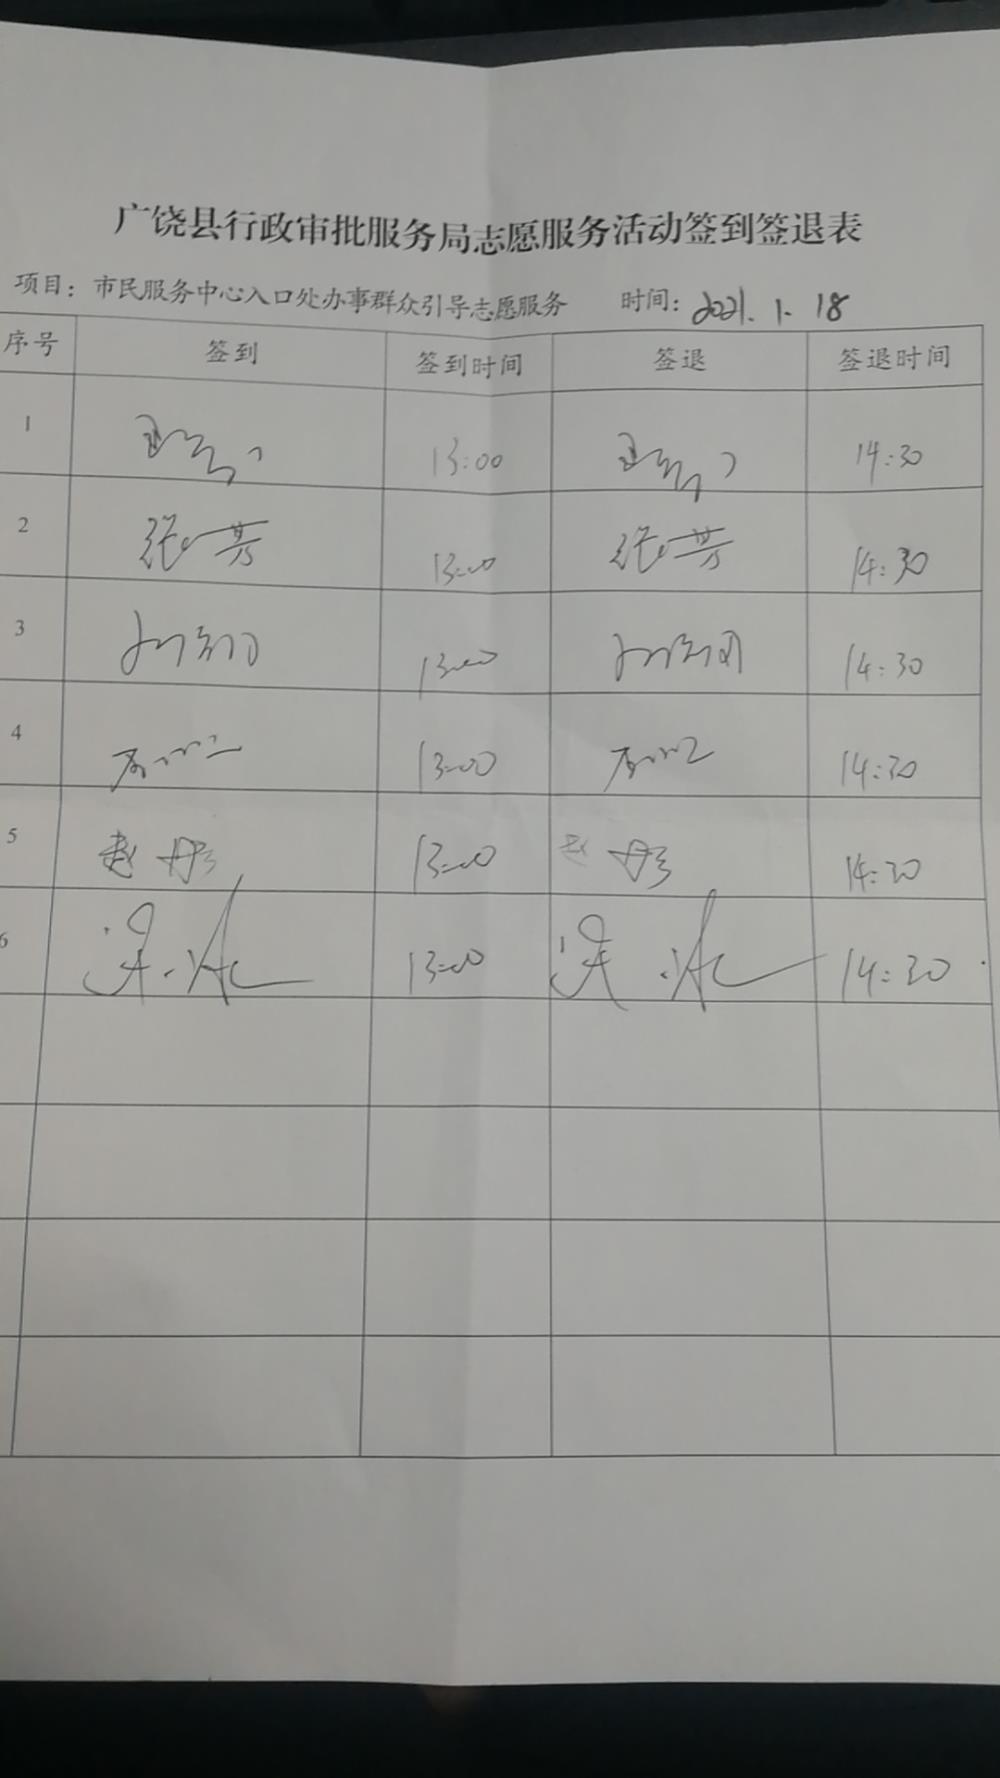 广饶县行政审批服务局志愿服务活动签到签退表
项目：市民服务中心入口处办事群众引导志愿服务 时间：2021.1.18
序号 签到 签到时间 签退 签退时间
1 13:00 14:30
2 张芳 13:00 张芳 14:30
3 13:00 14:30
4 13:00 14:30
5 赵彤 13:00 赵彤 14:30
6 13:00 14:30